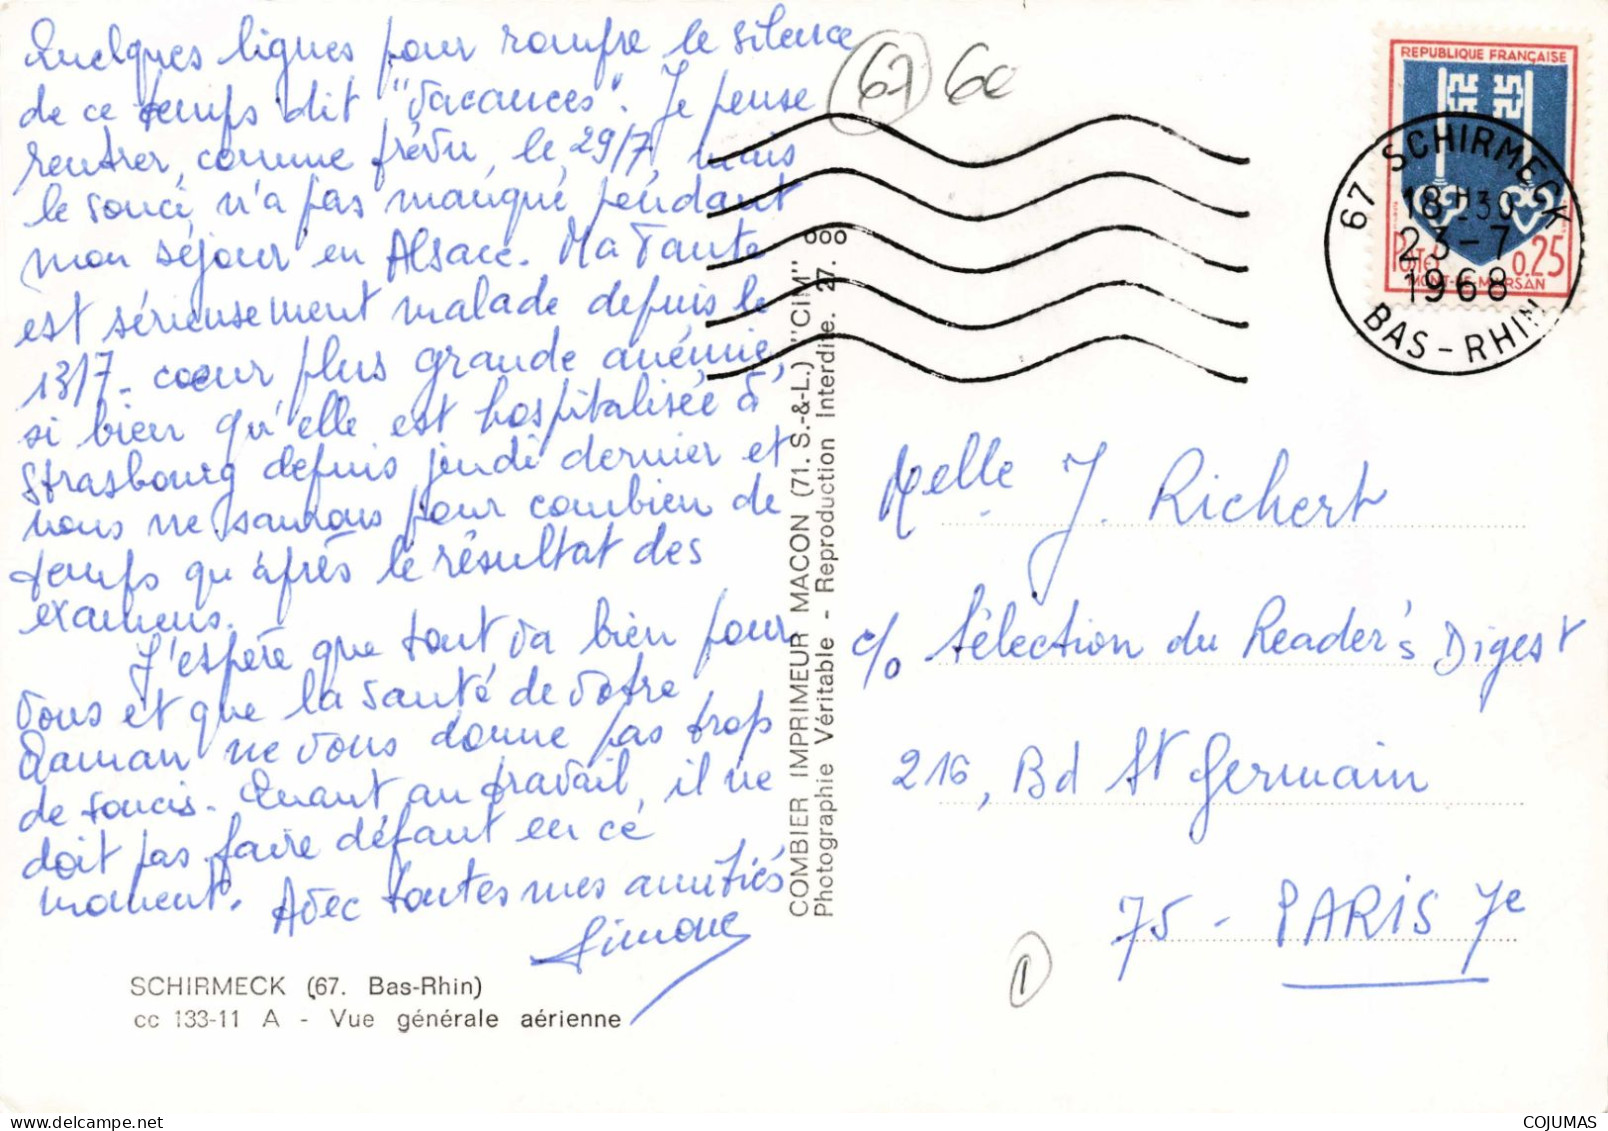 Quelques lignes pour rompre le silence
de ce temps dit "vacances". Je pense
rentrer, comme prévu, le 29/7 mais
le souci n'a pas manqué pendant
mon séjour en Alsace. Ma Tante
est sérieusement malade depuis le
13/7 - cœur plus grande anémie,
si bien qu'elle est hospitalisée à
Strasbourg depuis jeudi dernier et
nous ne saurons pour combien de
temps qu'après le résultat des
examens.
J'espère que tout va bien pour
vous et que la santé de votre
Maman ne vous donne pas trop
de soucis. Quant au travail, il ne
doit pas faire défaut en ce
moment. Avec toutes mes amitiés
Simone
SCHIRMECK (67. Bas-Rhin)
cc 133-11 A - Vue générale aérienne
COMBIER IMPRIMEUR MACON (71. S.-&-L.) "CIM"
Photographie Véritable - Reproduction Interdite. 27.
67 6e
REPUBLIQUE FRANÇAISE
POSTES 0.25
MONT-DE-MARSAN
67 SCHIRMECK
18H30
23-7
1968
BAS-RHIN
Melle J. Richert
c/o Sélection du Reader's Digest
216, Bd St Germain
75 - PARIS 7e
1
COJUMAS